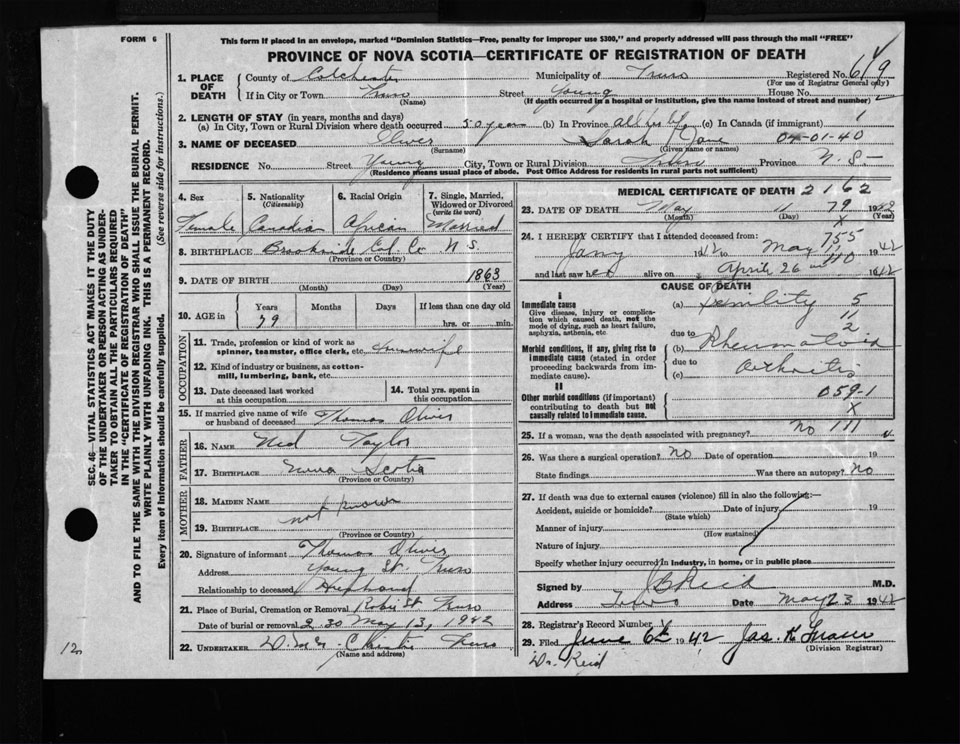 FORM 6
This form if placed in an envelope, marked "Dominion Statistics—Free, penalty for improper use $300," and properly addressed will pass through the mail "FREE"
PROVINCE OF NOVA SCOTIA—CERTIFICATE OF REGISTRATION OF DEATH
1. PLACE OF DEATH
County of Colchester Municipality of Truro Registered No.
(For use of Registrar General only)
If in City or Town Truro Street Young House No.
(Name) (If death occurred in a hospital or institution, give the name instead of street and number)
2. LENGTH OF STAY (in years, months and days)
(a) In City, Town or Rural Division where death occurred 50 years (b) In Province All her life (c) In Canada (if immigrant)
3. NAME OF DECEASED Oliver Sarah Jane 04-01-40
(Surname) (Given name or names)
RESIDENCE No. Street Young City, Town or Rural Division Truro Province N.S-
(Residence means usual place of abode. Post Office Address for residents in rural parts not sufficient)
4. Sex
Female
5. Nationality
(Citizenship)
Canadian
6. Racial Origin
African
7. Single, Married, Widowed or Divorced
(write the word)
Married
8. BIRTHPLACE Brookside Col. Co N S.
(Province or Country)
9. DATE OF BIRTH 1863
(Month) (Day) (Year)
10. AGE in
Years Months Days If less than one day old
79 hrs. or min.
OCCUPATION
11. Trade, profession or kind of work as spinner, teamster, office clerk, etc. housewife
12. Kind of industry or business, as cotton-mill, lumbering, bank, etc.
13. Date deceased last worked at this occupation
14. Total yrs. spent in this occupation
15. If married give name of wife or husband of deceased Thomas Oliver
FATHER
16. NAME Ned Taylor
17. BIRTHPLACE Nova Scotia
(Province or Country)
MOTHER
18. MAIDEN NAME
not known
19. BIRTHPLACE
(Province or Country)
20. Signature of informant Thomas Oliver
Address Young St. Truro
Relationship to deceased Husband
21. Place of Burial, Cremation or Removal Robie St Truro
Date of burial or removal 2.30 May 13, 1942
22. UNDERTAKER Christie Truro
(Name and address)
MEDICAL CERTIFICATE OF DEATH 2162
23. DATE OF DEATH May 11 79 1942
(Month) (Day) (Year)
X
24. I HEREBY CERTIFY that I attended deceased from:
Jany 1942 to May 11 1942
155
and last saw her alive on April 26 1942
CAUSE OF DEATH
I
Immediate cause
Give disease, injury or complication which caused death, not the mode of dying, such as heart failure, asphyxia, asthenia, etc.
(a) Senility 5
11
2
due to
Morbid conditions, if any, giving rise to immediate cause (stated in order proceeding backwards from immediate cause).
(b) Rheumatoid
due to
(c) Arthritis
II
Other morbid conditions (if important) contributing to death but not causally related to immediate cause.
059-1
X
25. If a woman, was the death associated with pregnancy? No
26. Was there a surgical operation? No Date of operation 19
State findings Was there an autopsy? No
27. If death was due to external causes (violence) fill in also the following:—
Accident, suicide or homicide? Date of injury 19
(State which)
Manner of injury
(How sustained)
Nature of injury
Specify whether injury occurred in industry, in home, or in public place
Signed by Reid M.D.
Address Truro Date May 23 1942
28. Registrar's Record Number
29. Filed June 6th 1942 Jas. K Fraser
(Division Registrar)
Dr. Reid
SEC. 46—VITAL STATISTICS ACT MAKES IT THE DUTY OF THE UNDERTAKER OR PERSON ACTING AS UNDERTAKER TO OBTAIN ALL THE PARTICULARS REQUIRED IN THE "CERTIFICATE OF REGISTRATION OF DEATH"
AND TO FILE THE SAME WITH THE DIVISION REGISTRAR WHO SHALL ISSUE THE BURIAL PERMIT.
WRITE PLAINLY WITH UNFADING INK. THIS IS A PERMANENT RECORD.
Every item of Information should be carefully supplied. (See reverse side for instructions.)